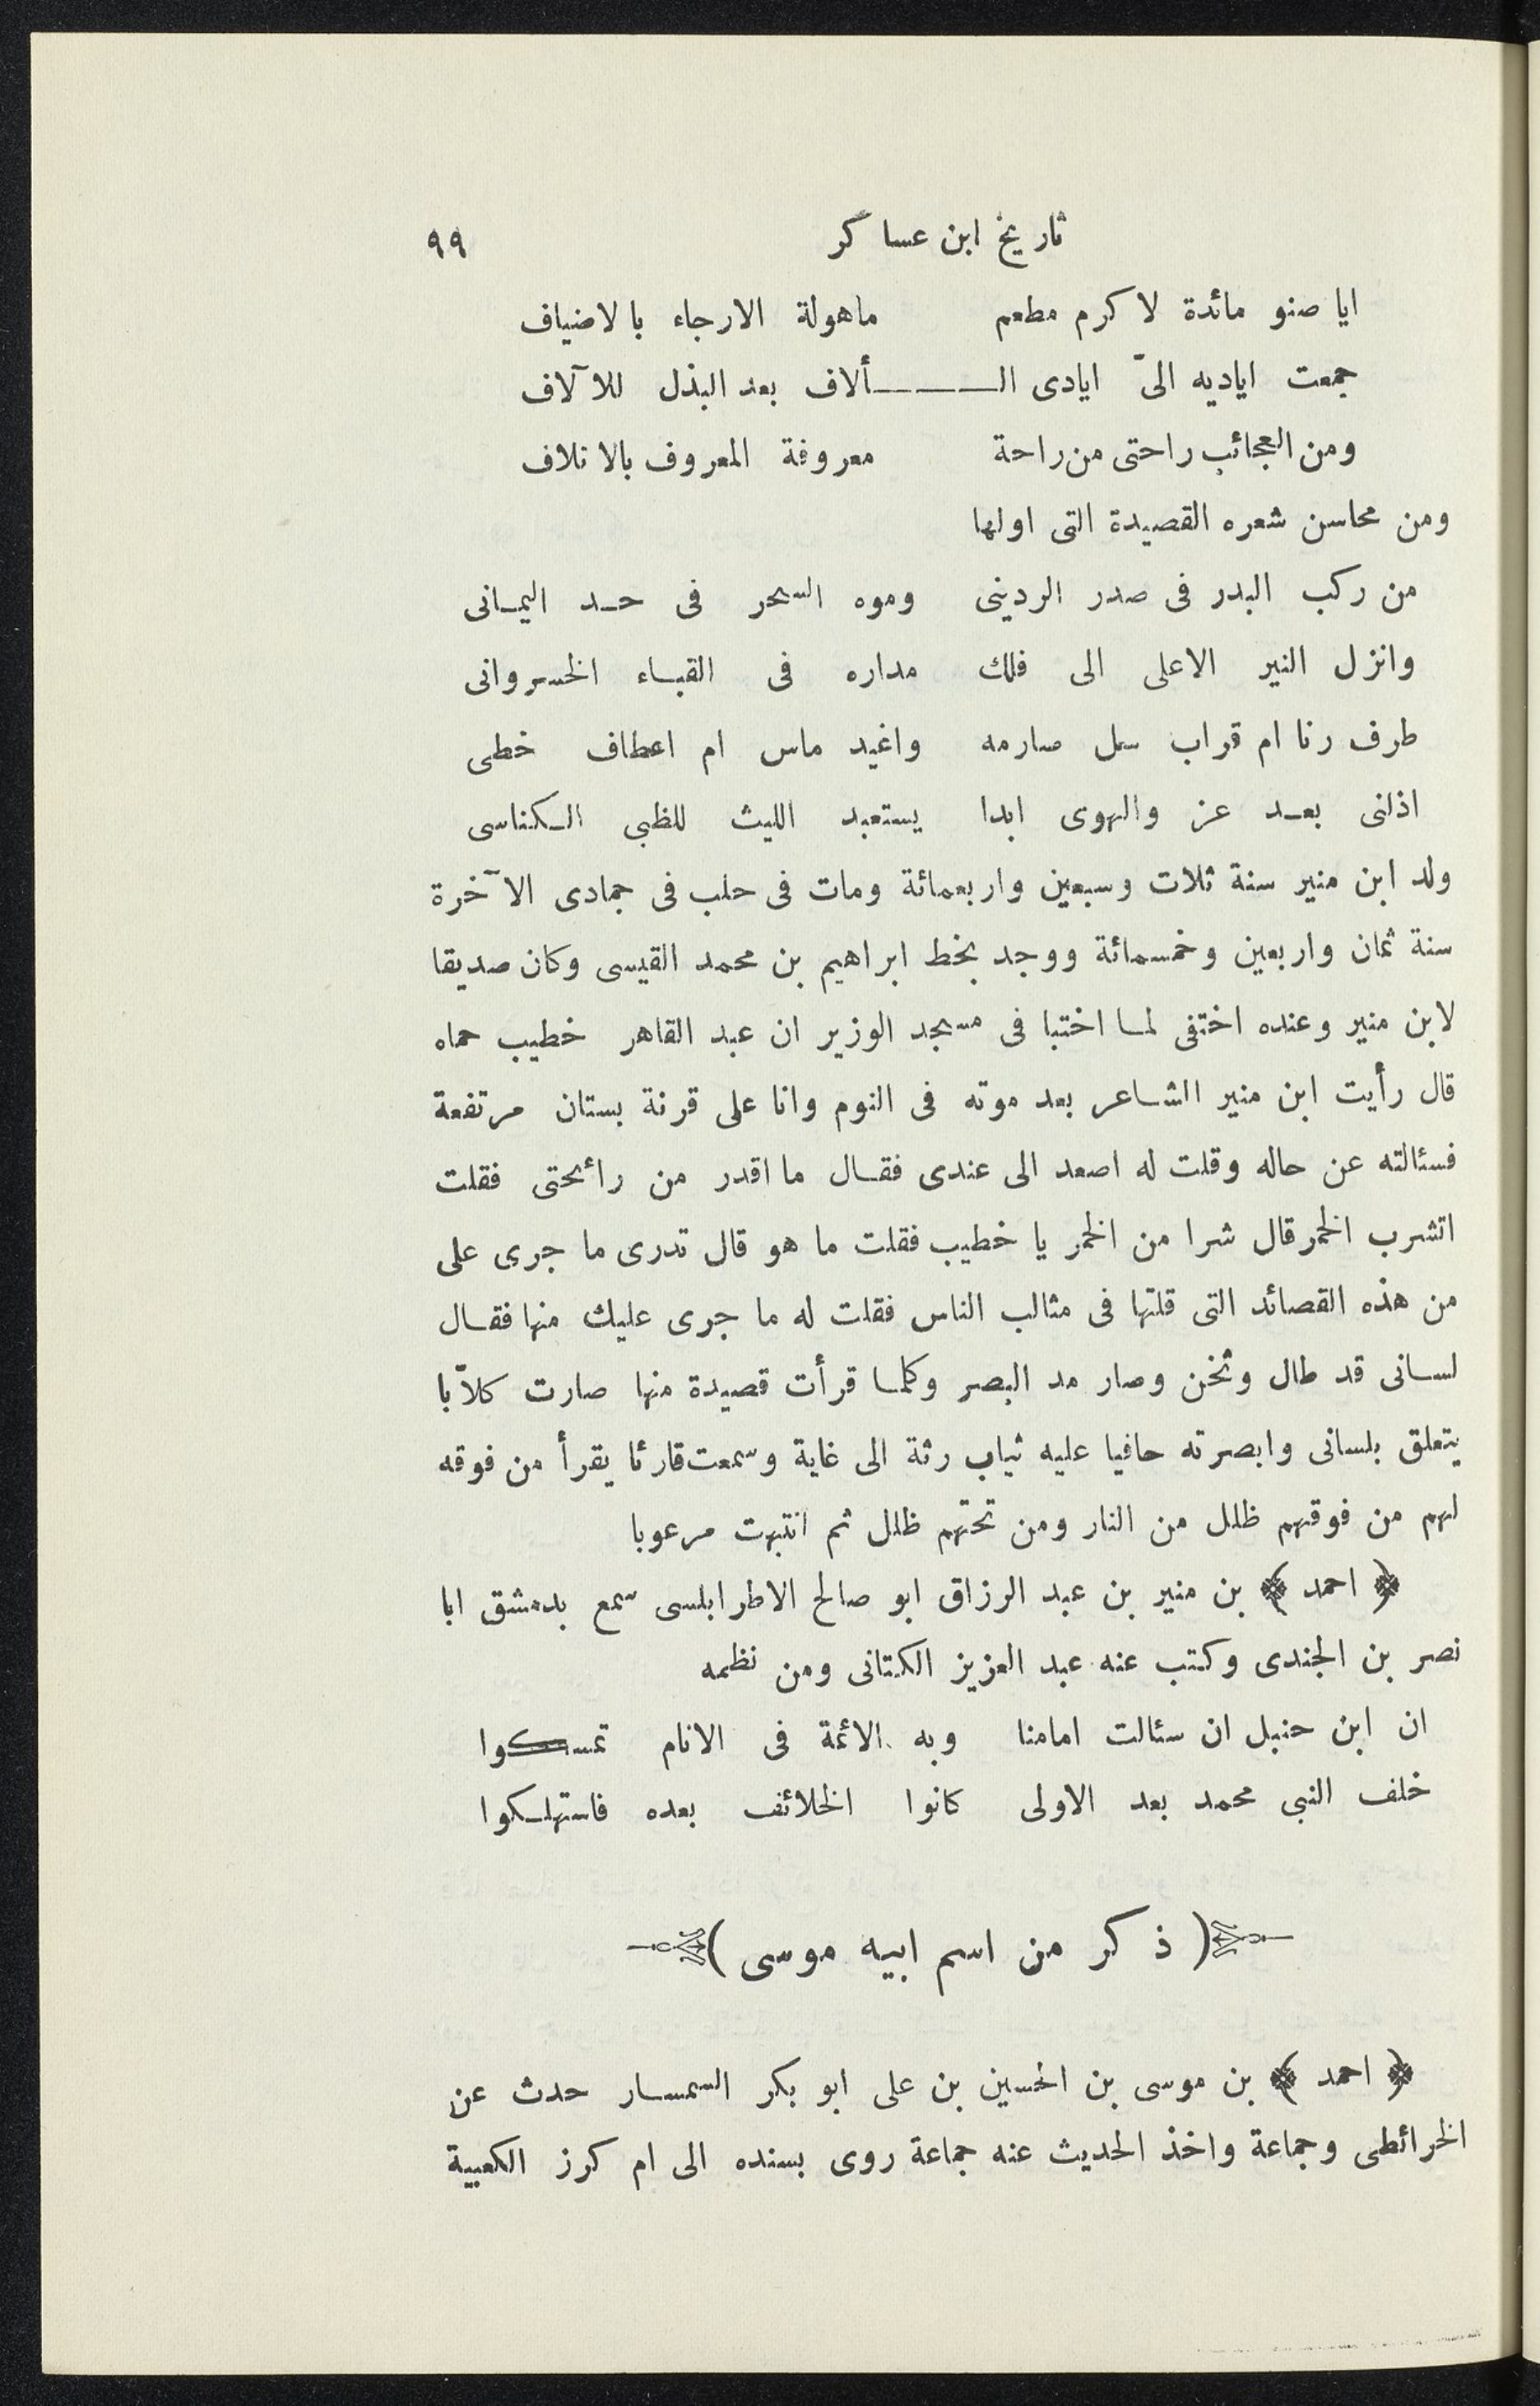 تاريخ ابن عساكر ٩٩
ايا صنو مائدة لاكرم مطعم ماهولة الارجاء بالاضياف
جمعت اياديه الىّ ايادى الـــــألاف بعد البذل للآلاف
ومن العجائب راحتى من راحة معروفة المعروف بالاتلاف
ومن محاسن شعره القصيدة التى اولها
من ركب البدر فى صدر الردينى وموه السحر فى حـد اليمـانى
وانزل النير الاعلى الى فلك مداره فى القبـاء الخسروانى
طرف رنا ام قراب سل صارمه واغيد ماس ام اعطاف خطى
اذلنى بعـد عز والهوى ابدا يستعبد الليث للظبى الـكناسى
ولد ابن منير سنة ثلاث وسبعين واربعمائة ومات فى حلب فى جمادى الآخرة
سنة ثمان واربعين وخمسمائة ووجد بخط ابراهيم بن محمد القيسى وكان صديقا
لابن منير وعنده اختفى لمـا اختبا فى مسجد الوزير ان عبد القاهر خطيب حماه
قال رأيت ابن منير الشـاعر بعد موته فى النوم وانا على قرنة بستان مرتفعة
فسئالته عن حاله وقلت له اصعد الى عندى فقـال ما اقدر من رائحتى فقلت
اتشرب الخمر قال شرا من الخمر يا خطيب فقلت ما هو قال تدرى ما جرى على
من هذه القصائد التى قلتها فى مثالب الناس فقلت له ما جرى عليك منها فقـال
لسـانى قد طال وثخن وصار مد البصر وكلمـا قرأت قصيدة منها صارت كلاّبا
يتعلق بلسانى وابصرته حافيا عليه ثياب رثة الى غاية وسمعت قارئا يقرأ من فوقه
لهم من فوقهم ظلل من النار ومن تحتهم ظلل ثم انتبهت مرعوبا
﴿ احمد ﴾ بن منير بن عبد الرزاق ابو صالح الاطرابلسى سمع بدمشق ابا
نصر بن الجندى وكتب عنه عبد العزيز الكتانى ومن نظمه
ان ابن حنبل ان سئالت امامنا وبه الائمة فى الانام تمسـكوا
خلف النبى محمد بعد الاولى كانوا الخلائف بعده فاستهلـكوا
( ذكر من اسم ابيه موسى )
﴿ احمد ﴾ بن موسى بن الحسين بن على ابو بكر السمسـار حدث عن
الخرائطى وجماعة واخذ الحديث عنه جماعة روى بسنده الى ام كرز الكعبية